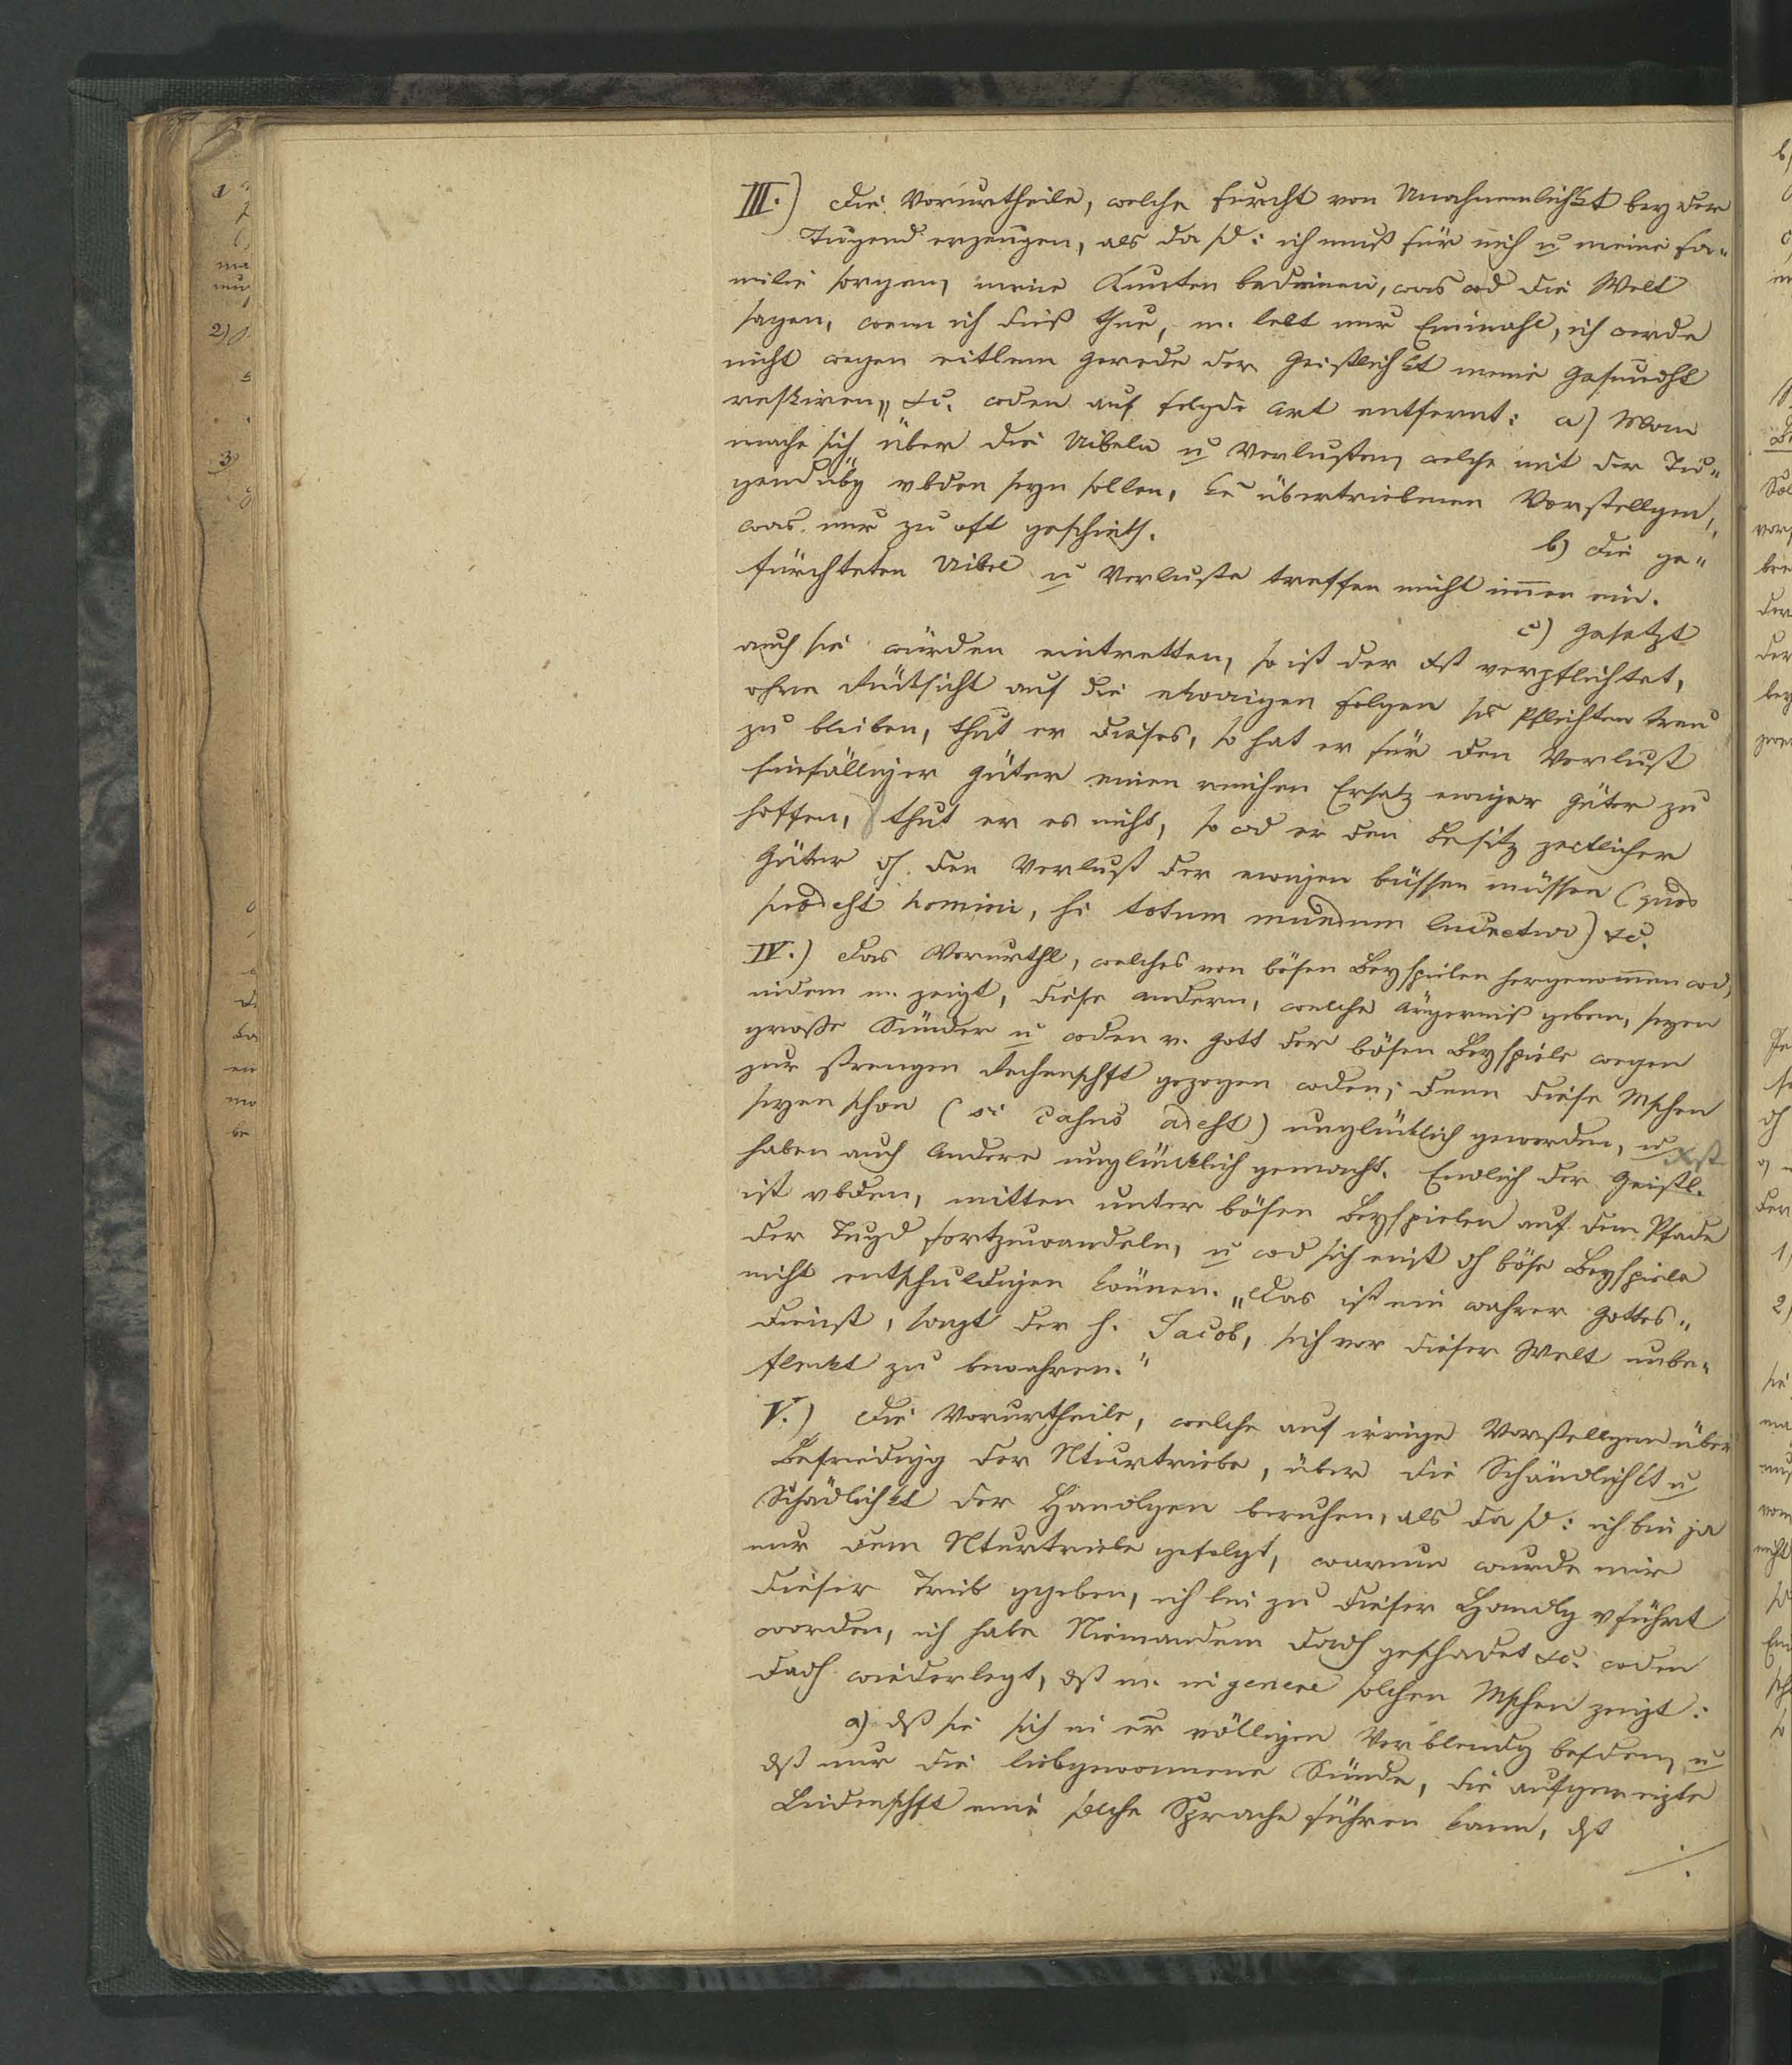 III.) Die Vorurtheile, welche Furcht von Unahnemlichkt bey der
Tugend erzeugen, als da sd: ich muß für mich u meine Fa-
milie sorgen, meine Kunten bedienen, was wd die Welt
sagen, wenn ich dieß thue, m. lebt nur Einmahl, ich werde
nicht wegen eitlem Gerede der Geistlichkt meine Gesundht
reskiren„ &c. wden auf folgde Art entfernt: a) Man
mache sich über die Uibeln u Verlusten, welche mit der Tu-
gendübg vbden seyn sollen, ke übertriebenen Vorstellgen,
was nur zu oft geschieht.
b) Die ge-
fürchteten Uibel u Verluste treffen nicht im̅er ein.
c) Gesetzt
auch sie würden eintretten, so ist der Xst verpflichtet,
ohne Rücksicht auf die etwaigen Folgen ss Pflichten treu
zu bleiben, thut er dieses, so hat er für den Verlust
hinfälliger Güter einen reichen Ersatz ewiger Güter zu
hoffen, thut er es nicht, so wd er den Besitz zeitlicher
Güter dh den Verlust der ewigen büssen müssen (quod
prodest homini, si totum mundum lucretur) &c.
IV.) Das Vorurthl, welches von bösen Beyspielen hergenom̅en wd,
indem m. zeigt, diese andern, welche Ärgerniß geben, seyen
große Sünder u wden v. Gott der bösen Beyspiele wegen
zur strengen Rechenschft gezogen wden; denn diese Mschen
seyen schon (si casus adest) unglücklich geworden, u
haben auch Andere unglücklich gemacht. Endlich der Geistl. Xst
ist vbden, mitten unter bösen Beyspielen auf dem Pfade
der Tugd fortzuwandeln, u wd sich einst dh böse Beyspiele
nicht entschuldigen können. „Das ist ein wahrer Gottes-
dienst, sagt der h. Jacob, sich vor dieser Welt unbe-
fleckt zu bewahren."
V.) Die Vorurtheile, welche auf irrige Vorstellgen über
Befriedigg der Nturtriebe, über die Schändlichkt u
Schädlichkt der Handlgen beruhen, als da sd: ich bin ja
nur dem Nturtriebe gefolgt, warum wurde mir
dieser Trieb gegeben, ich bin zu dieser Handlg vführt
worden, ich habe Niemandem dadh geschadet &c. wden
dadh wiederlegt, dß m. in genere solchen Mschen zeigt:
a) dß sie sich in er völligen Verblendg befden, u
dß nur die liebgewonnene Sünde, die aufgereizte
Leidenschft eine solche Sprache führen kann, dß
./.